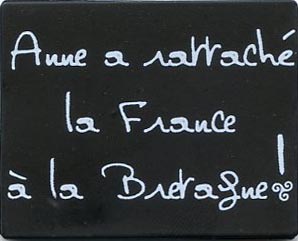 Anne a rattaché
la France
à la Bretagne!